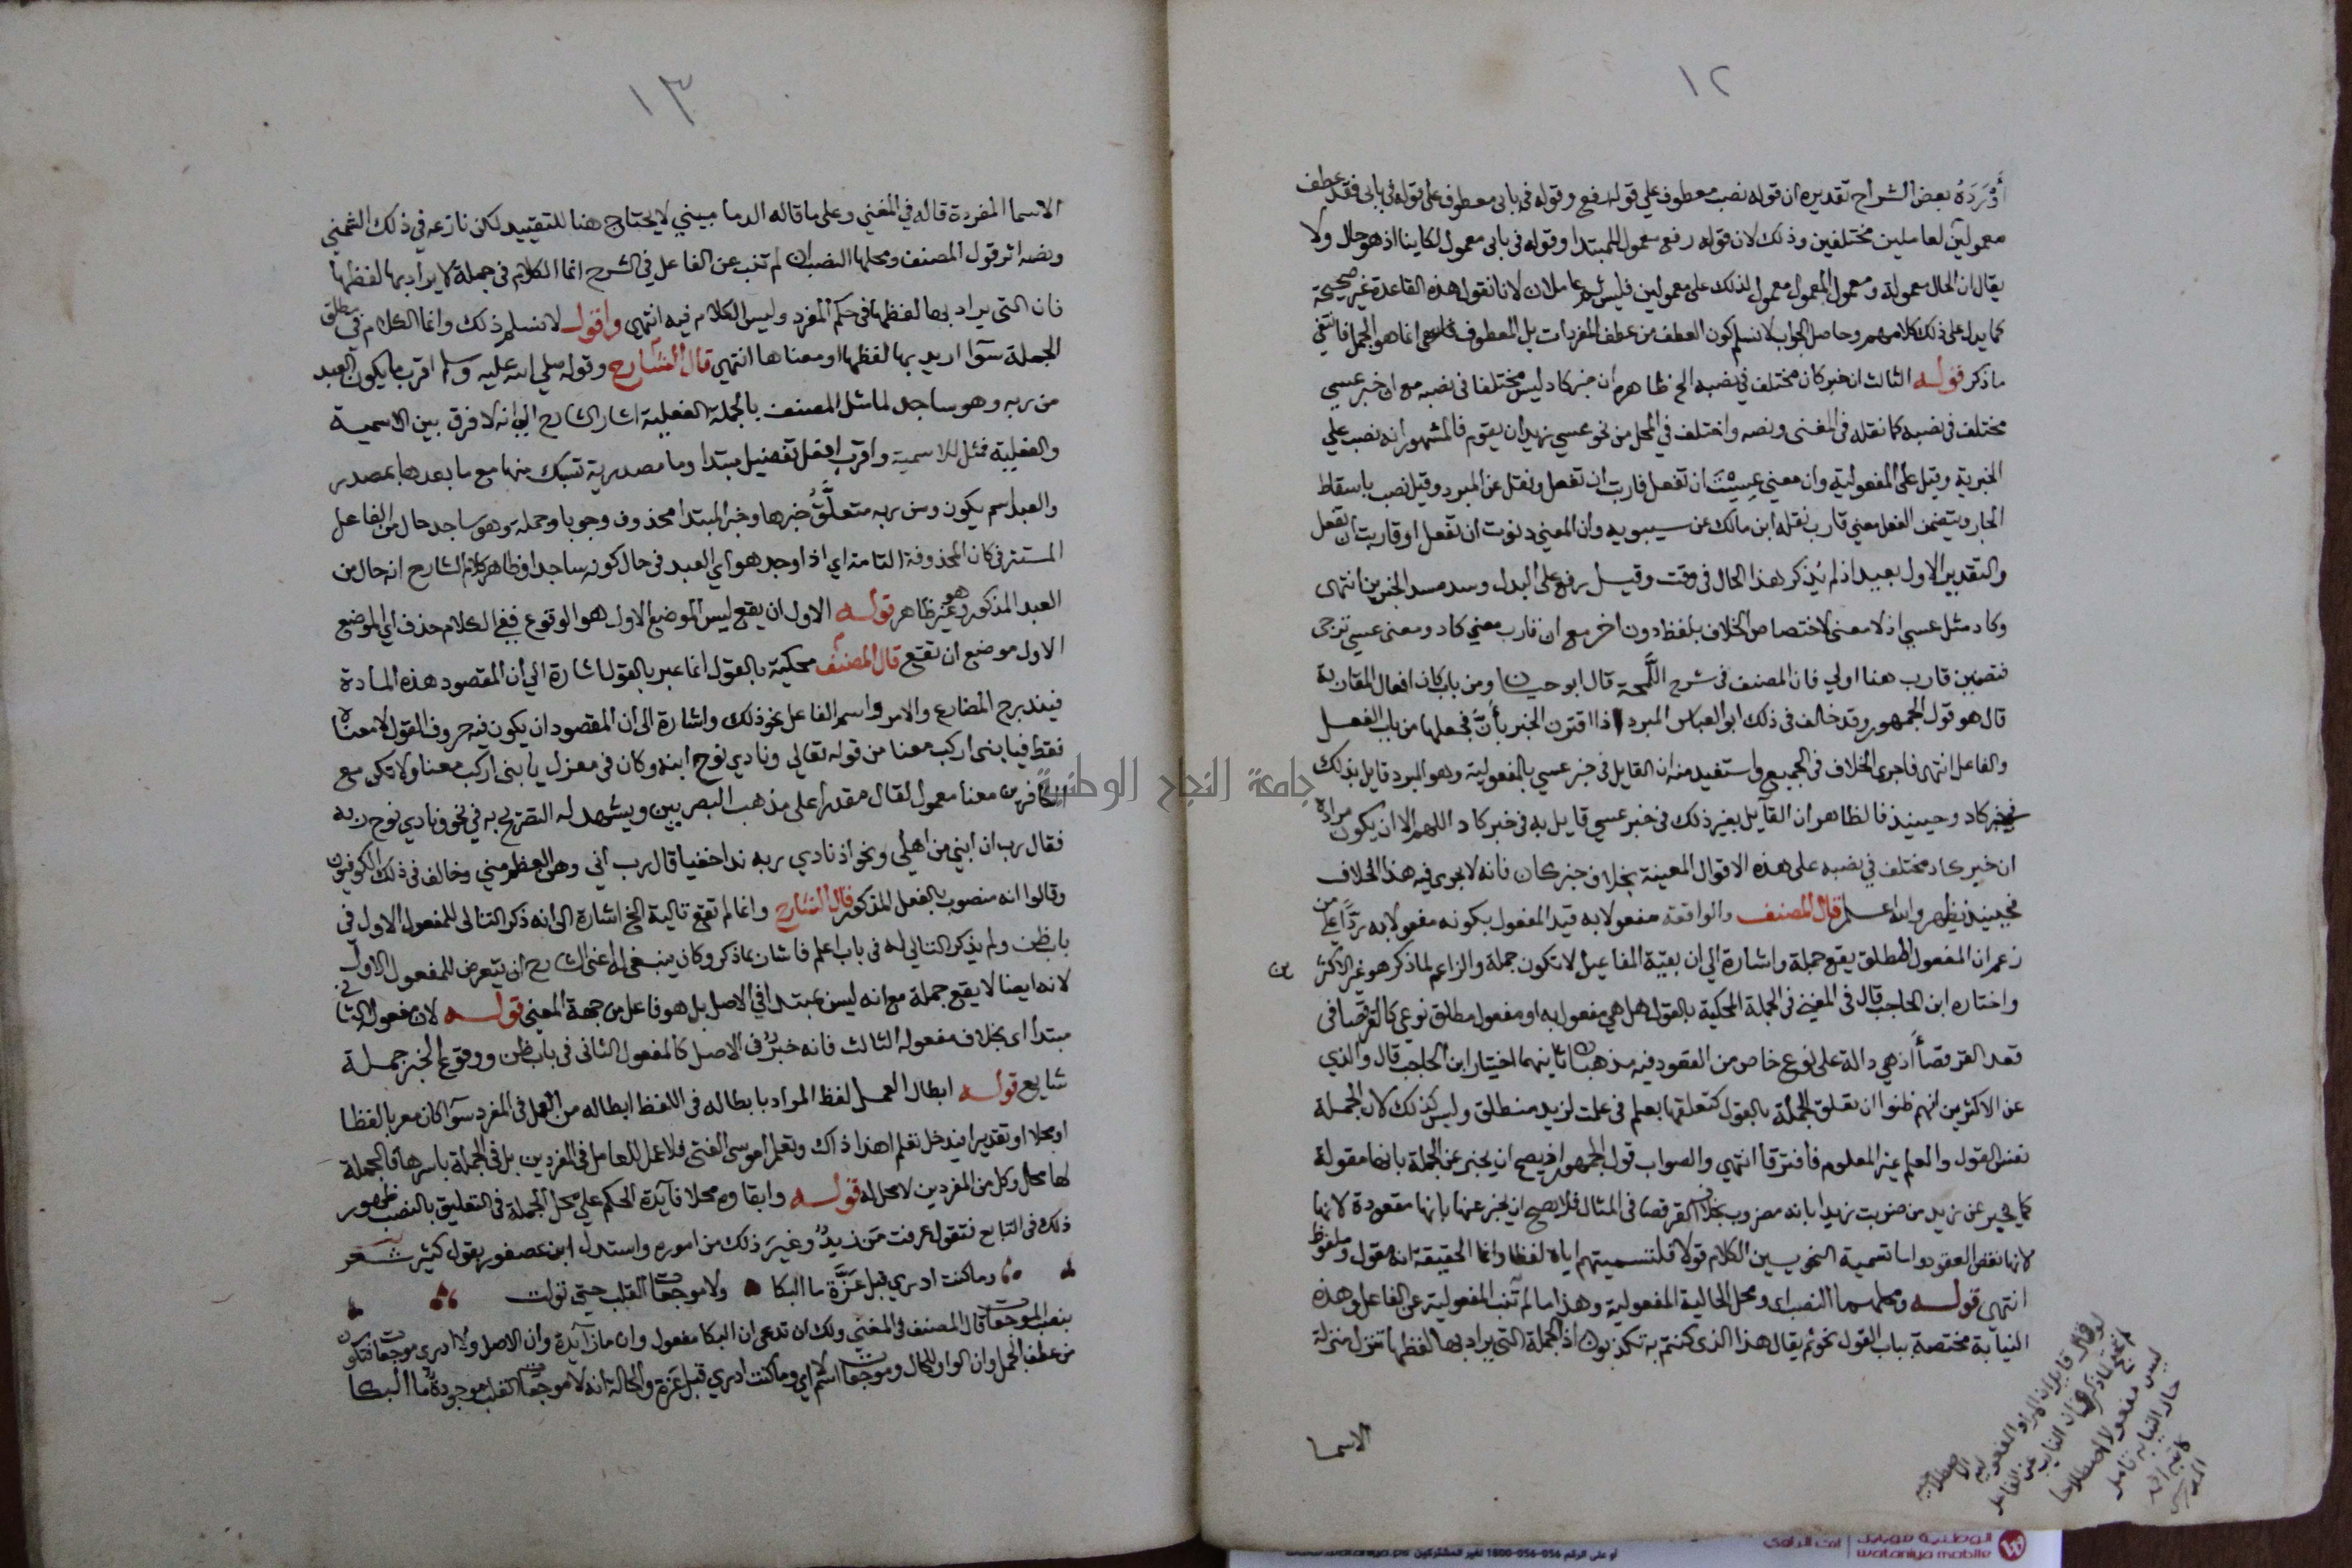 ١٢
أَوْرَدَهُ بعض الشراح تقديره ان قوله نصب معطوف علي قوله رفع وقوله في بابي معطوف على قوله في بابي فقد عطف
معمولين لعاملين مختلفين وذلك لان قوله رفع معمول للمبتدا وقوله في بابي معمول لكاينا اذ هو حال ولا
يقال ان الحال معمولة ومعمول المعمول معمول لذلك على معمولين فليس ثم عاملان لانا نقول هذه القاعدة غير صحيحة
كما يدل على ذلك كلامهم وحاصل الجواب لا نسلم كون العطف من عطف المفردات بل المعطوف انما هو الجمل فانتفي
ماذكر قوله الثالث ان خبر كان مختلف في نصبه الخ ظاهره ان خبر كاد ليس مختلفا في نصبه مع ان خبر عسي
مختلف في نصبه كما نقله في المغني ونصه واختلف في المحل من نحو عسي زيد ان يقوم فالمشهور انه نصب علي
الخبرية وقيل على المفعولية وان معني عسيت ان تفعل قاربت ان تفعل ونقل عن المبرد وقيل نصب باسقاط
الجار ويتضمن الفعل معني قارب نقله ابن مالك عن سيبويه وان المعني دنوت ان تفعل او قاربت ان تفعل
والتقدير الاول بعيد اذ لم يُذكر هذا الحال في وقت وقيل رفع على البدل وسد مسد الجزين انتهى
وكاد مثل عسي اذ لا معنى لاختصاص الخلاف بلفظ دون اخر مع ان قارب معني كاد ومعنى عسي ترجى
فتضمين قارب هنا اولي فان المصنف في شرح اللَّمحة قال ابو حيان ومن باب كان افعال المقاربة
قال هو قول الجمهور وقد خالف في ذلك ابو العباس المبرد اذا اقترن الخبر بأن فجعلها من باب الفعل
والفاعل انتهى فاجرى الخلاف في الجميع واستفيد منه ان القايل في خبر عسي بالمفعولية وهو المبرد قايل بذلك
في خبر كاد وحينيذ فالظاهر ان القآيل بغير ذلك في خبر عسي قايل به في خبر كاد اللهم الا ان يكون مراده
ان خبر كاد مختلف في نصبه على هذه الاقوال المعينة بخلاف خبر كان فانه لا يجرى فيه هذا الخلاف
فحينيذ يظهر والله اعلم قال المصنف والواقعة مفعولا به قيد المفعول بكونه مفعولا به ردًّا علي من
زعم ان المفعول المطلق يقع جملة واشارة الي ان بقية المفاعيل لا تكون جملة والزاعم لما ذكر هو غير الاكثر
ين
واختاره ابن الحاجب قال في المغني في الجملة المحكية بالقول هل هي مفعول به او مفعول مطلق نوعي كالقرفصا في
قعد القرفصآ اذ هي دالة على نوع خاص من القعود فيه مذهبان ثانيهما اختيار ابن الحاجب قال والذي
غر الاكثرين انهم ظنوا ان تعلق الجملة بالقول كتعلقها بعلم في علمت لزيد منطلق وليس كذلك لان الجملة
نفس القول والعلم غير المعلوم فافترقا انتهي والصواب قول الجمهور اذ يصح ان يخبر عن الجملة بانها مقولة
كما يخبر عن زيد من ضربت زيدا بانه مضروب بخلاف القرفصا في المثال فلا يصح ان يخبر عنها بانها مقعودة لانها
لانها نفس القعود واما تسمية النحويين الكلام قولا فلتسميتهم اياه لفظا وانما الحقيقة انه مقول وملفوظ
انتهى قوله ومحلهما النصب اى ومحل الحالية المفعولية وهذا ما لم تنب المفعولية عن الفاعل وهذه
النيابة مختصة بباب القول نحو ثم يقال هذا الذى كنتم به تكذبون اذ الجملة التي يراد بها لفظها تنزل منزلة
الاسما
١٣
الاسما المفردة قاله في المغني وعلى ما قاله الدماميني لا يحتاج هنا للتقييد لكن نازعه في ذلك الشمني
ونصه اثر قول المصنف ومحلها النصب ان لم تنب عن الفاعل في الشرح انما الكلام في جملة لا يراد بها لفظها
فان التي يراد بها لفظها في حكم المفرد وليس الكلام فيه انتهى واقول لا نسلم ذلك وانما الكلام في مطلق
الجملة سوا اريد بها لفظها او معناها انتهي قال الشارح وقوله صلي الله عليه وسلم اقرب ما يكون العبد
من ربه وهو ساجد لما مثل المصنف بالجملة الفعلية اشار الشارح الي انه لا فرق بين الاسمية
والفعلية فمثل للاسمية واقرب افعل تفضيل مبتدا وما مصدرية تسبك منها مع ما بعدها بمصدر
والعبد اسم يكون ومن ربه متعلَّقُ خبرها وخبر المبتدا محذوف وجوبا وجملة وهو ساجد حال من الفاعل
المستتر في كان المحذوفة التامة اي اذا وجد هو اي العبد في حال كونه ساجدا وظاهر كلام الشارح انه حال من
العبد المذكور وهو غير ظاهر قوله الاول ان يقع ليس الموضع الاول هو الوقوع ففي الكلام حذف اي الموضع
الاول موضع ان تقع قال المصنف محكية بالقول انما عبر بالقول اشارة الي ان المقصود هذه المادة
فيندرج المضارع والامر واسم الفاعل نحو ذلك واشارة الى ان المقصود ان يكون فيه حروف القول لا معناه
فقط فيا بنى اركب معنا من قوله تعالي ونادي نوح ابنه وكان في معزل يا بنى اركب معنا ولا تكن مع
الكافرين معنا معمول لقال مقدرا على مذهب البصريين ويشهد له التصريح به في نحو ونادي نوح ربه
فقال رب ان ابني من اهلي ونحو اذ نادي ربه ندا خفيا قال رب اني وهن العظم مني وخالف في ذلك الكوفيون
وقالوا انه منصوب بالفعل المذكور قال الشارح وانما لم تقع تالية الخ اشارة الى انه ذكر التالى للمفعول الاول في
باب ظن ولم يذكر التالي له في باب اعلم فاشار بما ذكر وكان ينبغي له اعنى الشارح ان يتعرض للمفعول الاول
لانه ايضا لا يقع جملة مع انه ليس بمبتدا في الاصل بل هو فاعل من جهة المعني قوله لان مفعوله الثاني
مبتدأ اى بخلاف مفعوله الثالث فانه خبر في الاصل كالمفعول الثانى في باب ظن ووقوع الخبر جملة
شايع قوله ابطال العمل لفظ المراد بابطاله في اللفظ ابطاله من العمل في المفرد سوآ كان معربا لفظا
او محلا او تقديرا فيدخل نعلم اهذا ذاك وتعلم اموسى الفتى فلا عمل للعامل في المفردين بل في الجملة باسرها فالجملة
لها محل وكل من المفردين لا محل له قوله وابقاوه محلا فآيدة الحكم علي محل الجملة في التعليق بالنصب ظهور
ذلك في التابع فتقول عرفت مَن زيدٌ وغيرَ ذلك من اموره واستدل ابن عصفور بقول كثير شعر
وما كنت ادري قبل عَزَّة ما البكا ولا موجعات القلب حتي تولت
بنصب الموجعات قال المصنف في المغني ولك ان تدعى ان البكا مفعول وان ما زآيدة وان الاصل ولا ادرى موجعات فتكون
من عطف الجمل وان الواو للحال وموجعات اسم لا اي وما كنت ادري قبل عزة والحالة انه لا موجعات القلب موجودة ما البكا
جامعة النجاح الوطنية
الوطنية موبايل
wataniya mobile